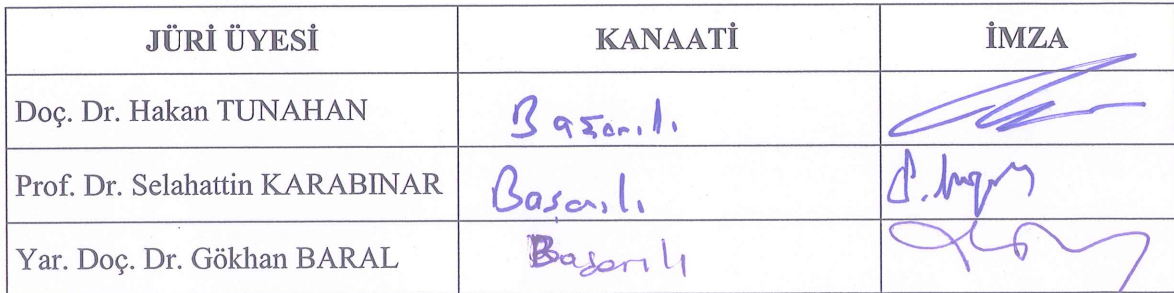 JÜRİ ÜYESİ KANAATİ İMZA
Doç. Dr. Hakan TUNAHAN Başarılı
Prof. Dr. Selahattin KARABINAR Başarılı
Yar. Doç. Dr. Gökhan BARAL Başarılı